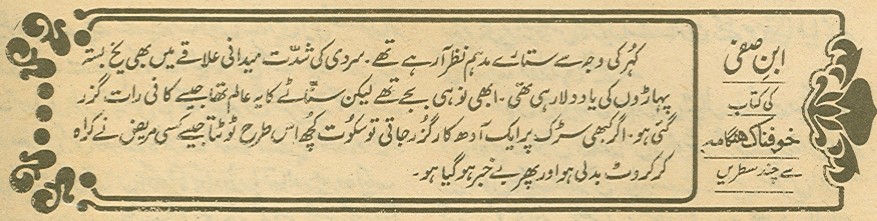 ابنِ صفی
کی کتاب
خوفناک ہنگامہ
سے چند سطریں
کہُر کی وجہ سے ستارے مدہم نظر آ رہے تھے۔ سردی کی شدّت میدانی علاقے میں بھی یخ بستہ
پہاڑوں کی یاد دلا رہی تھی۔ ابھی نو ہی بجے تھے لیکن سنّاٹے کا یہ عالم تھا جیسے کافی رات گزر
گئی ہو۔ اگر کبھی سڑک پر ایک آدھ کار گزر جاتی تو سکوت کچُھ اس طرح ٹوٹتا جیسے کسی مریض نے کراہ
کر کروٹ بدلی ہو اور پھر بے خبر ہو گیا ہو۔